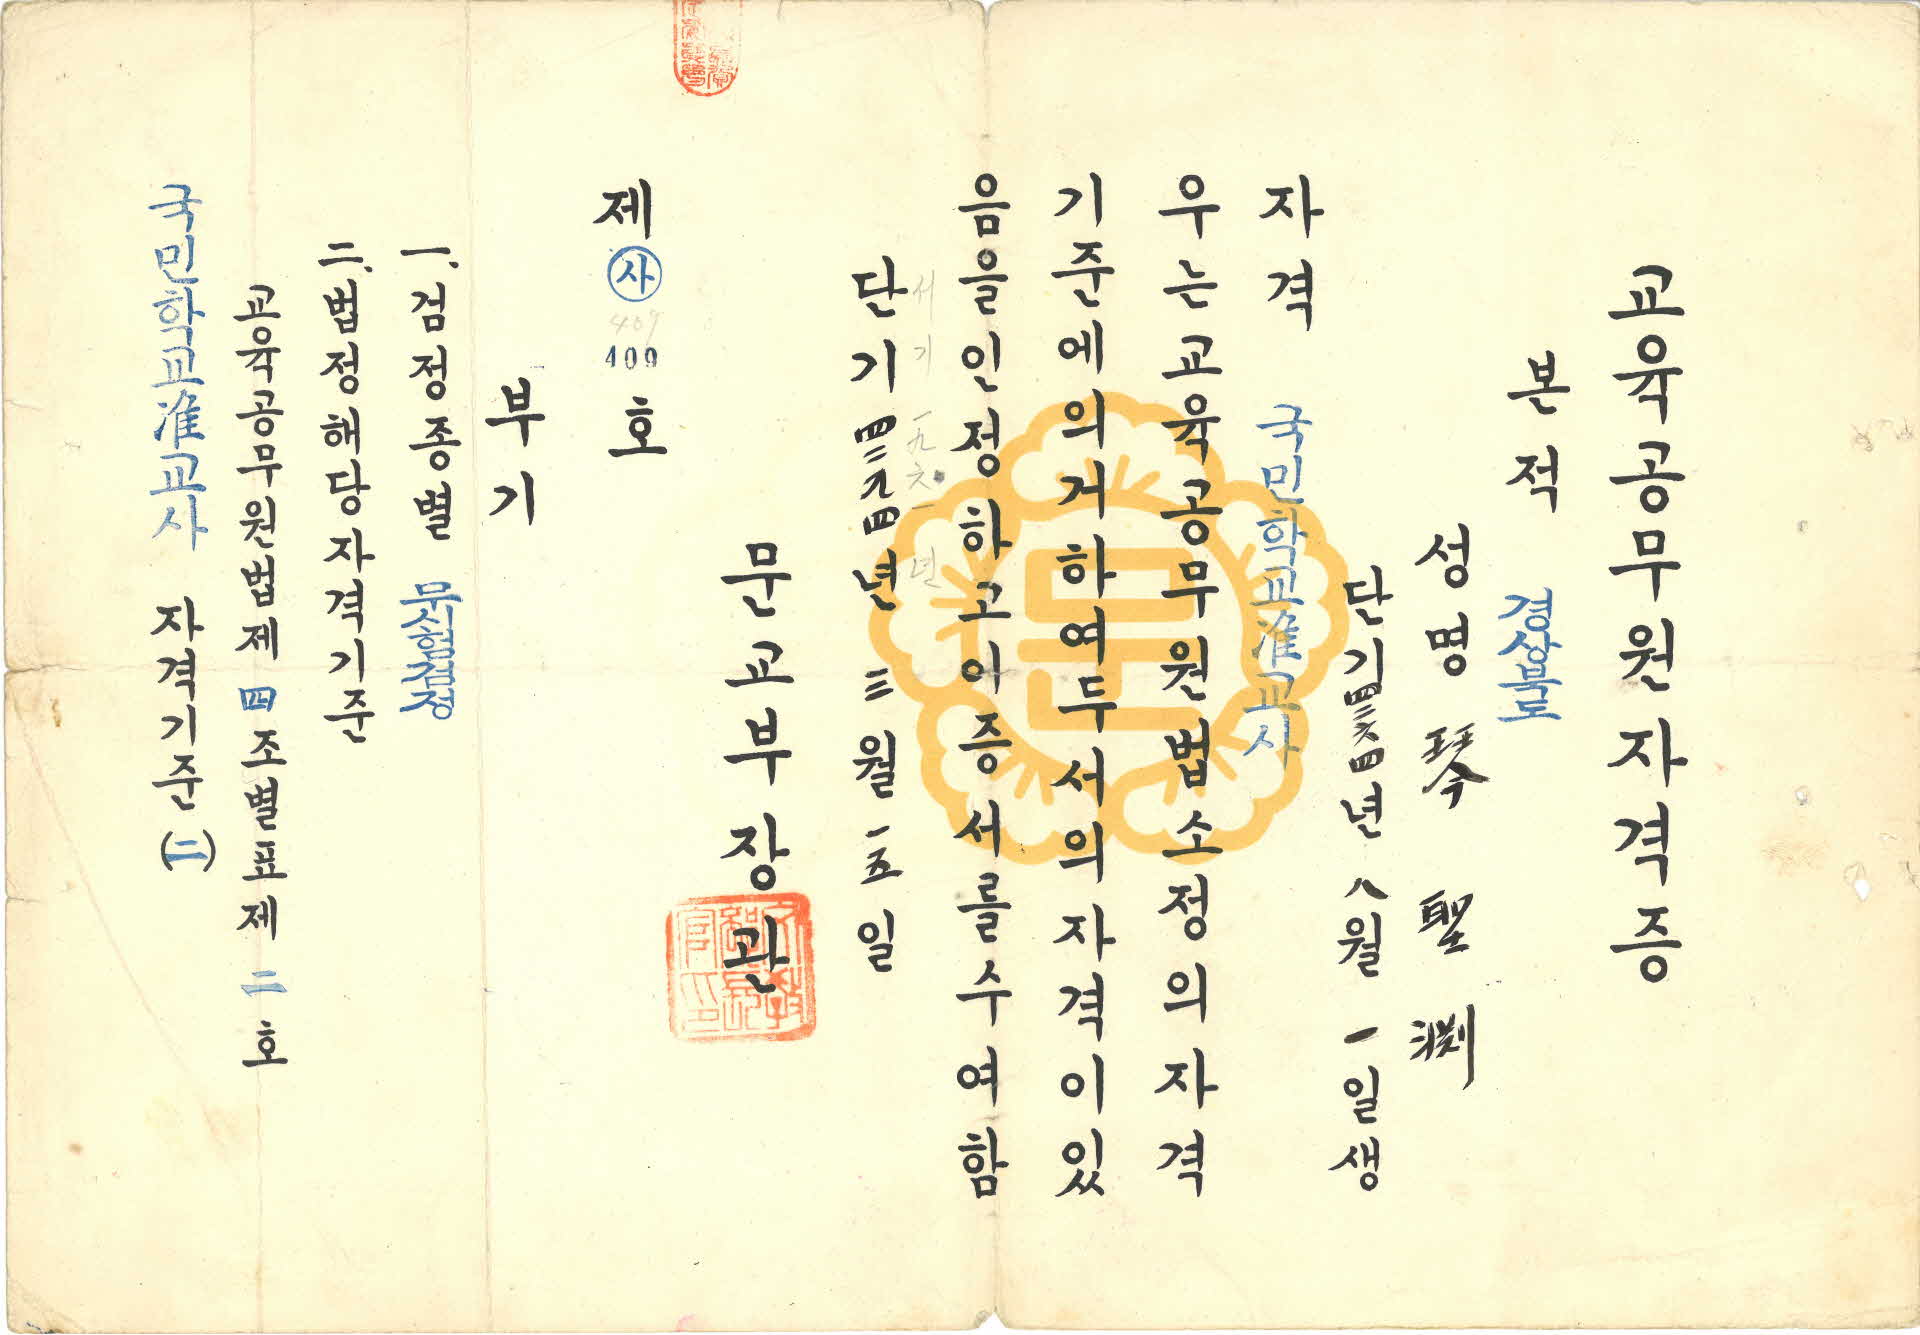 교육공무원자격증
본적 경상북도
성명 琴聖淵
단기四二六四년八월一일생
자격 국민학교准교사
우는교육공무원법소정의자격
기준에의거하여두서의자격이있
음을인정하고이증서를수여함
서기 一九六一년
단기四二九四년三월一五일
문교부장관
文敎部長官印
제㉴409호
409
부기
一.검정종별 무시험검정
二.법정해당자격기준
교육공무원법제四조별표제二호
국민학교准교사 자격기준(二)